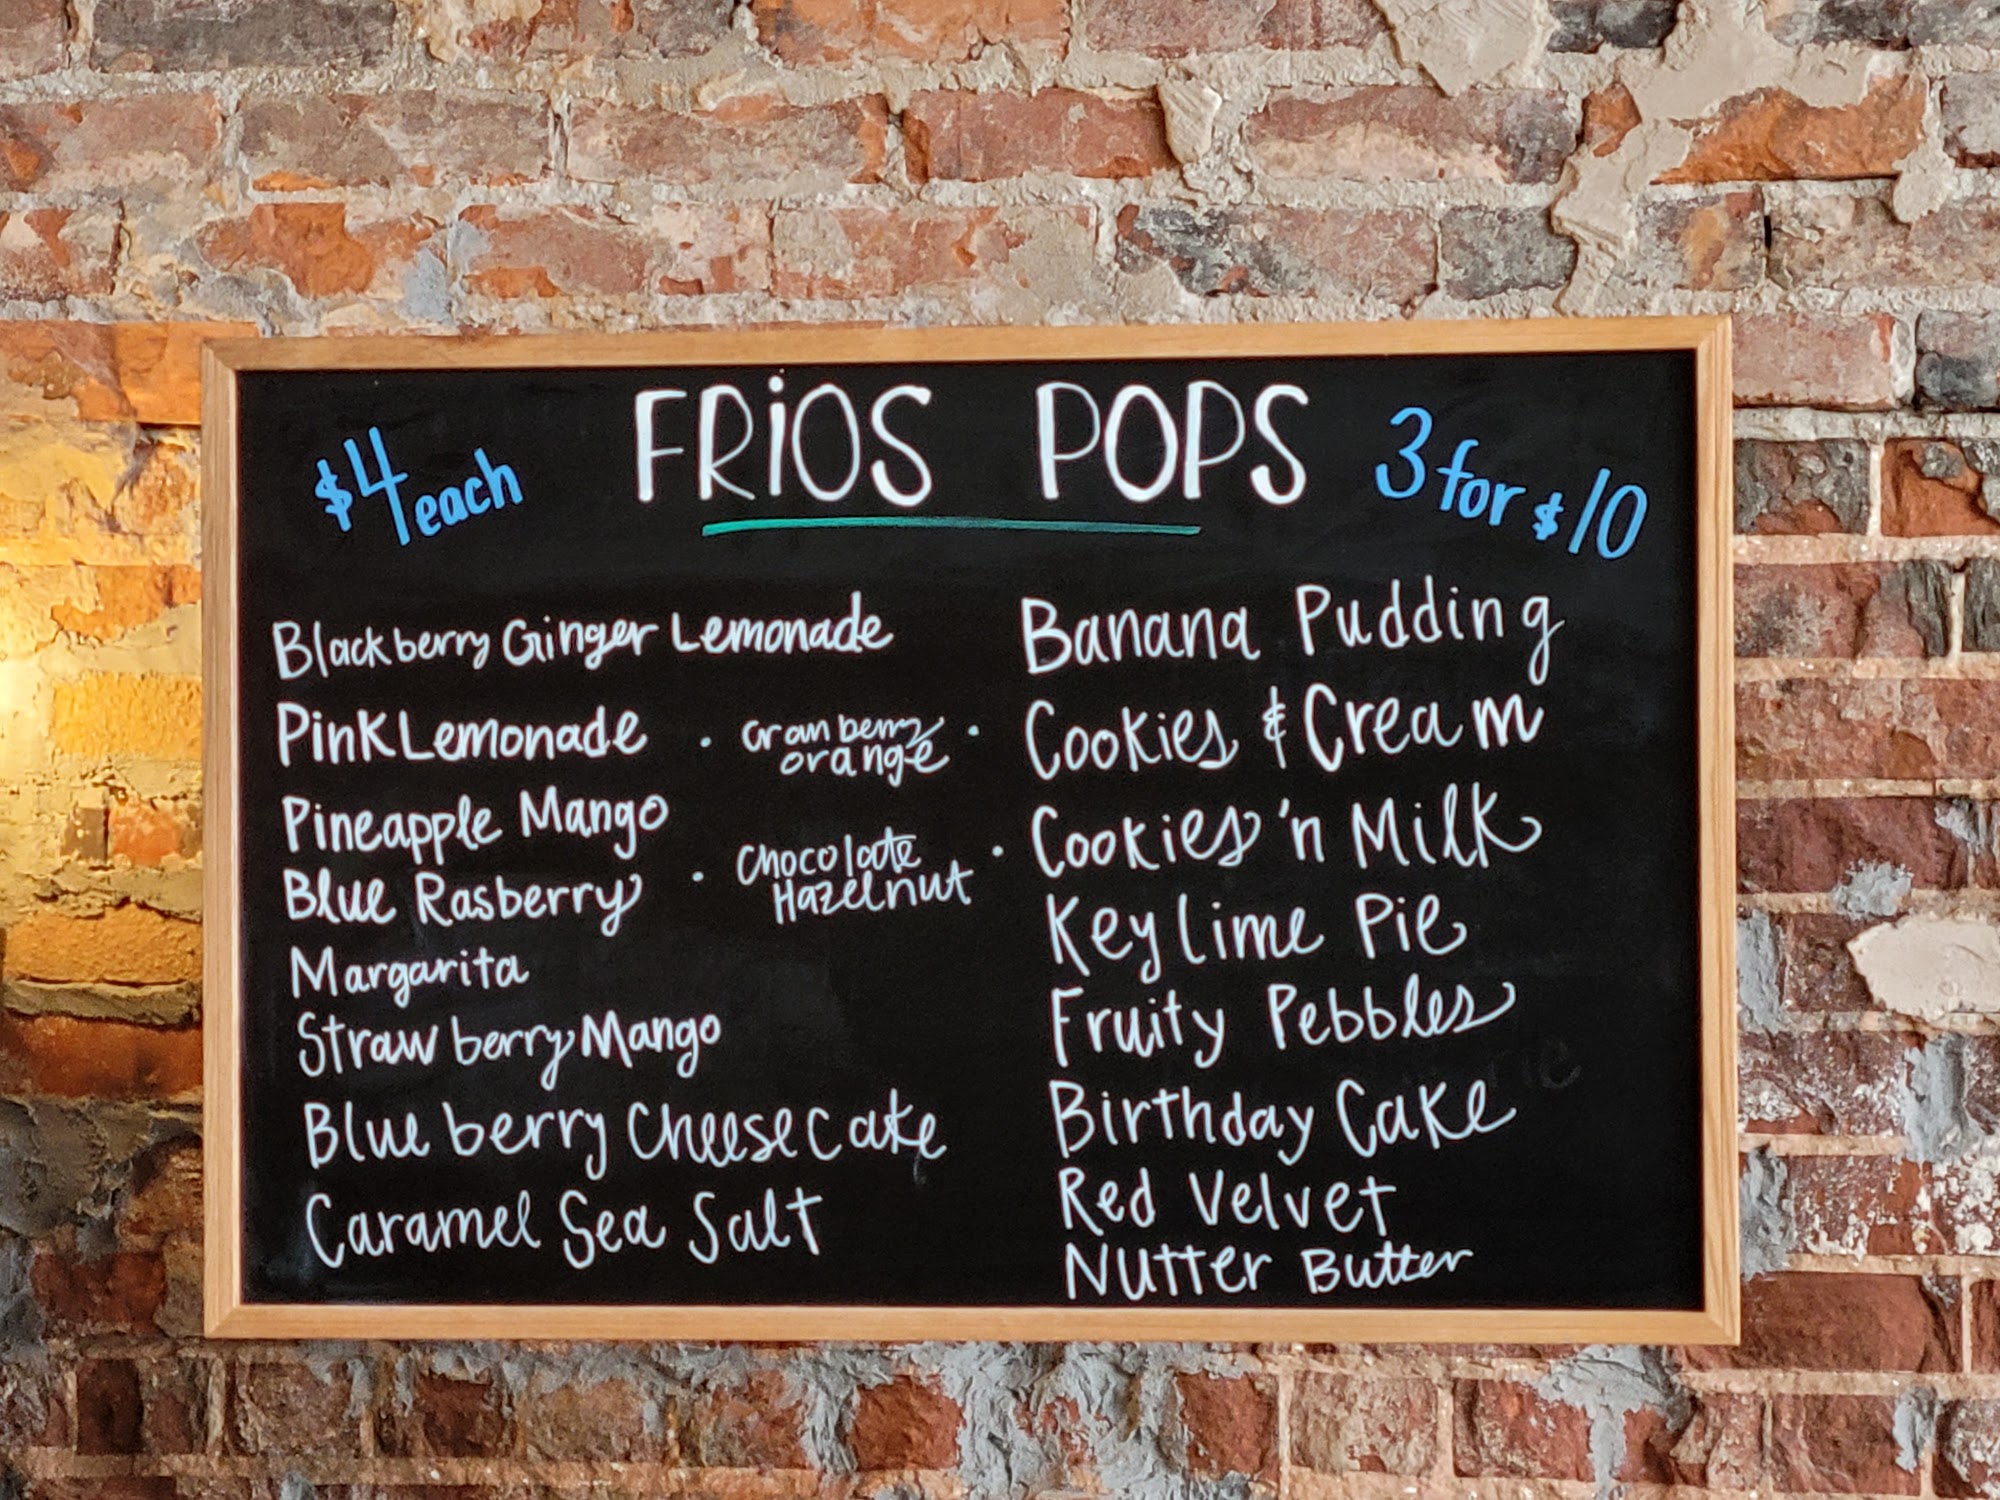 $4 each
FRiOS POPS
3 for $10
Blackberry Ginger Lemonade
Pink Lemonade
Pineapple Mango
Blue Rasberry
Margarita
Strawberry Mango
Blueberry Cheesecake
Caramel Sea Salt
· Cranberry ·
orange
· Chocolate ·
Hazelnut
Banana Pudding
Cookies & Cream
Cookies 'n Milk
Key lime Pie
Fruity Pebbles
Birthday Cake
Red Velvet
Nutter Butter